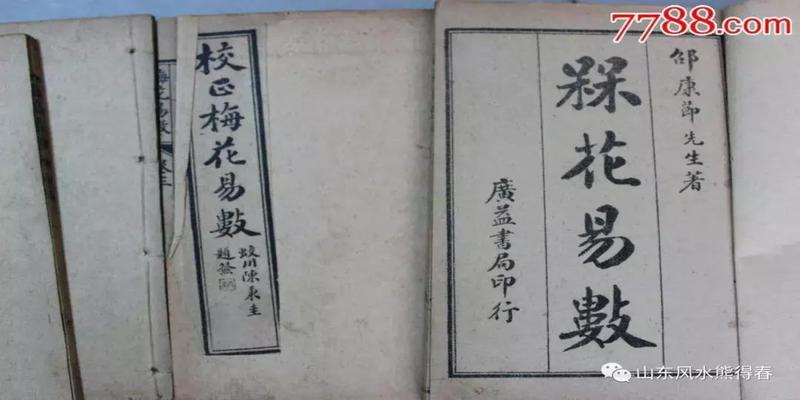 7788.com
邵康節先生著
槑花易數
廣益書局印行
校正梅花易數
蛟川陳東圭
題簽
梅花易數 卷三
山东风水熊得春